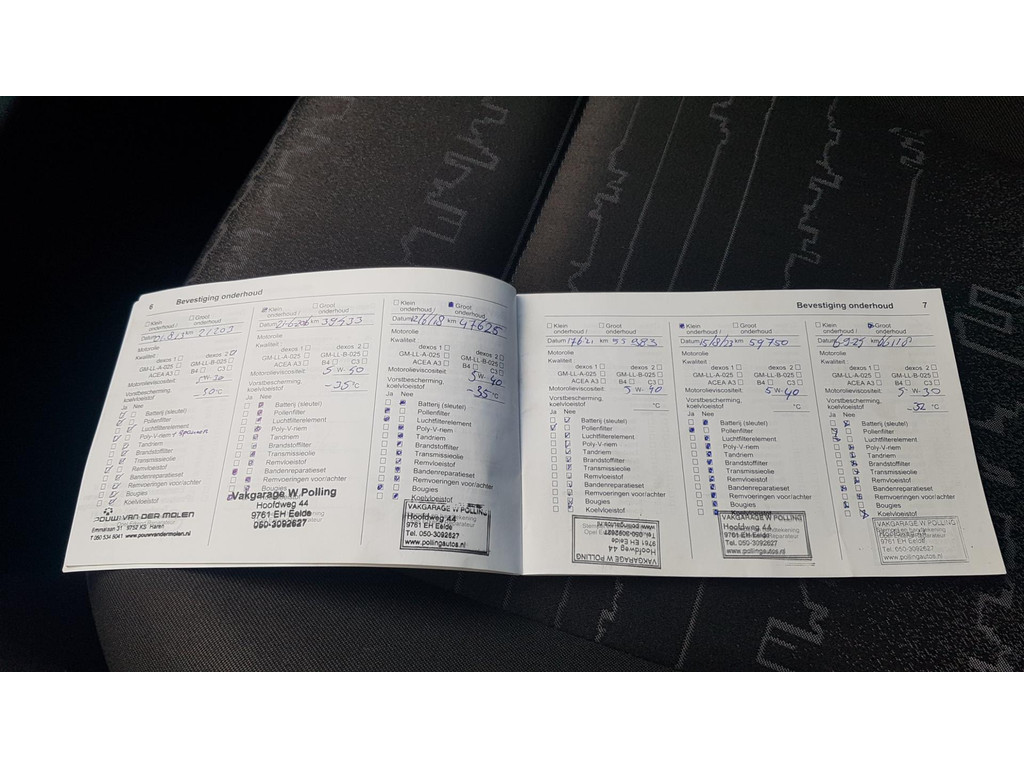 6 Bevestiging onderhoud
Klein onderhoud / Groot onderhoud
Datum km 21203
Motorolie
Kwaliteit
dexos 1 dexos 2
GM-LL-A-025 GM-LL-B-025
ACEA A3 B4 C3
Motorolieviscositeit:
Vorstbescherming, koelvloeistof -30 °C
Ja Nee
Batterij (sleutel)
Pollenfilter
Luchtfilterelement
Poly-V-riem
Tandriem
Brandstoffilter
Transmissieolie
Remvloeistof
Bandenreparatieset
Remvoeringen voor/achter
Bougies
Koelvloeistof
POUW VAN DER MOLEN
Emmalaan 31 9752 KS Haren
T 050 534 5041 www.pouwvandermolen.nl
Klein onderhoud / Groot onderhoud
Datum km 39433
Motorolie
Kwaliteit:
dexos 1 dexos 2
GM-LL-A-025 GM-LL-B-025
ACEA A3 B4 C3
Motorolieviscositeit: 5 W- 50
Vorstbescherming, koelvloeistof -35 °C
Ja Nee
Batterij (sleutel)
Pollenfilter
Luchtfilterelement
Poly-V-riem
Tandriem
Brandstoffilter
Transmissieolie
Remvloeistof
Bandenreparatieset
Remvoeringen voor/achter
Bougies
Vakgarage W Polling
Hoofdweg 44
9761 EH Eelde
050-3092627
Klein onderhoud / Groot onderhoud
Datum km 47625
Motorolie
Kwaliteit:
dexos 1 dexos 2
GM-LL-A-025 GM-LL-B-025
ACEA A3 B4 C3
Motorolieviscositeit: 5 W- 40
Vorstbescherming, koelvloeistof -35 °C
Ja Nee
Batterij (sleutel)
Pollenfilter
Luchtfilterelement
Poly-V-riem
Tandriem
Brandstoffilter
Transmissieolie
Remvloeistof
Bandenreparatieset
Remvoeringen voor/achter
Bougies
Koelvloeistof
VAKGARAGE W POLLING
Hoofdweg 44
9761 EH Eelde
Tel. 050-3092627
www.pollingautos.nl
Bevestiging onderhoud 7
Klein onderhoud / Groot onderhoud
Datum 17621 km 55983
Motorolie
Kwaliteit:
dexos 1 dexos 2
GM-LL-A-025 GM-LL-B-025
ACEA A3 B4 C3
Motorolieviscositeit: 5 W- 40
Vorstbescherming, koelvloeistof °C
Ja Nee
Batterij (sleutel)
Pollenfilter
Luchtfilterelement
Poly-V-riem
Tandriem
Brandstoffilter
Transmissieolie
Remvloeistof
Bandenreparatieset
Remvoeringen voor/achter
Bougies
Koelvloeistof
VAKGARAGE W POLLING
Hoofdweg 44
9761 EH Eelde
Tel. 050-3092627
www.pollingautos.nl
Klein onderhoud / Groot onderhoud
Datum 15/8/23 km 59750
Motorolie
Kwaliteit:
dexos 1 dexos 2
GM-LL-A-025 GM-LL-B-025
ACEA A3 B4 C3
Motorolieviscositeit: 5 W- 40
Vorstbescherming, koelvloeistof °C
Ja Nee
Batterij (sleutel)
Pollenfilter
Luchtfilterelement
Poly-V-riem
Tandriem
Brandstoffilter
Transmissieolie
Remvloeistof
Bandenreparatieset
Remvoeringen voor/achter
Bougies
Koelvloeistof
VAKGARAGE W POLLING
Hoofdweg 44
9761 EH Eelde
Tel. 050-3092627
www.pollingautos.nl
Klein onderhoud / Groot onderhoud
Datum km
Motorolie
Kwaliteit:
dexos 1 dexos 2
GM-LL-A-025 GM-LL-B-025
ACEA A3 B4 C3
Motorolieviscositeit: 5 W- 30
Vorstbescherming, koelvloeistof -32 °C
Ja Nee
Batterij (sleutel)
Pollenfilter
Luchtfilterelement
Poly-V-riem
Tandriem
Brandstoffilter
Transmissieolie
Remvloeistof
Bandenreparatieset
Remvoeringen voor/achter
Bougies
Koelvloeistof
VAKGARAGE W POLLING
Hoofdweg 44
9761 EH Eelde
Tel. 050-3092627
www.pollingautos.nl